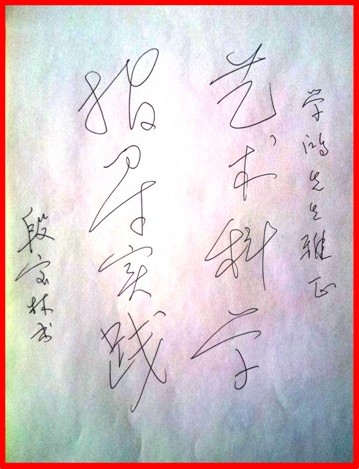 学鸿先生雅正
艺术科学
指导实践
段宝林书